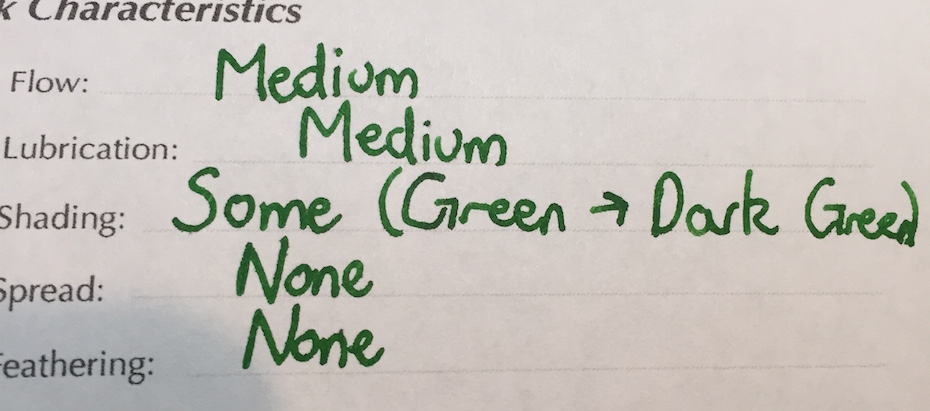 k Characteristics
Flow: Medium
Lubrication: Medium
Shading: Some (Green → Dark Green)
Spread: None
Feathering: None